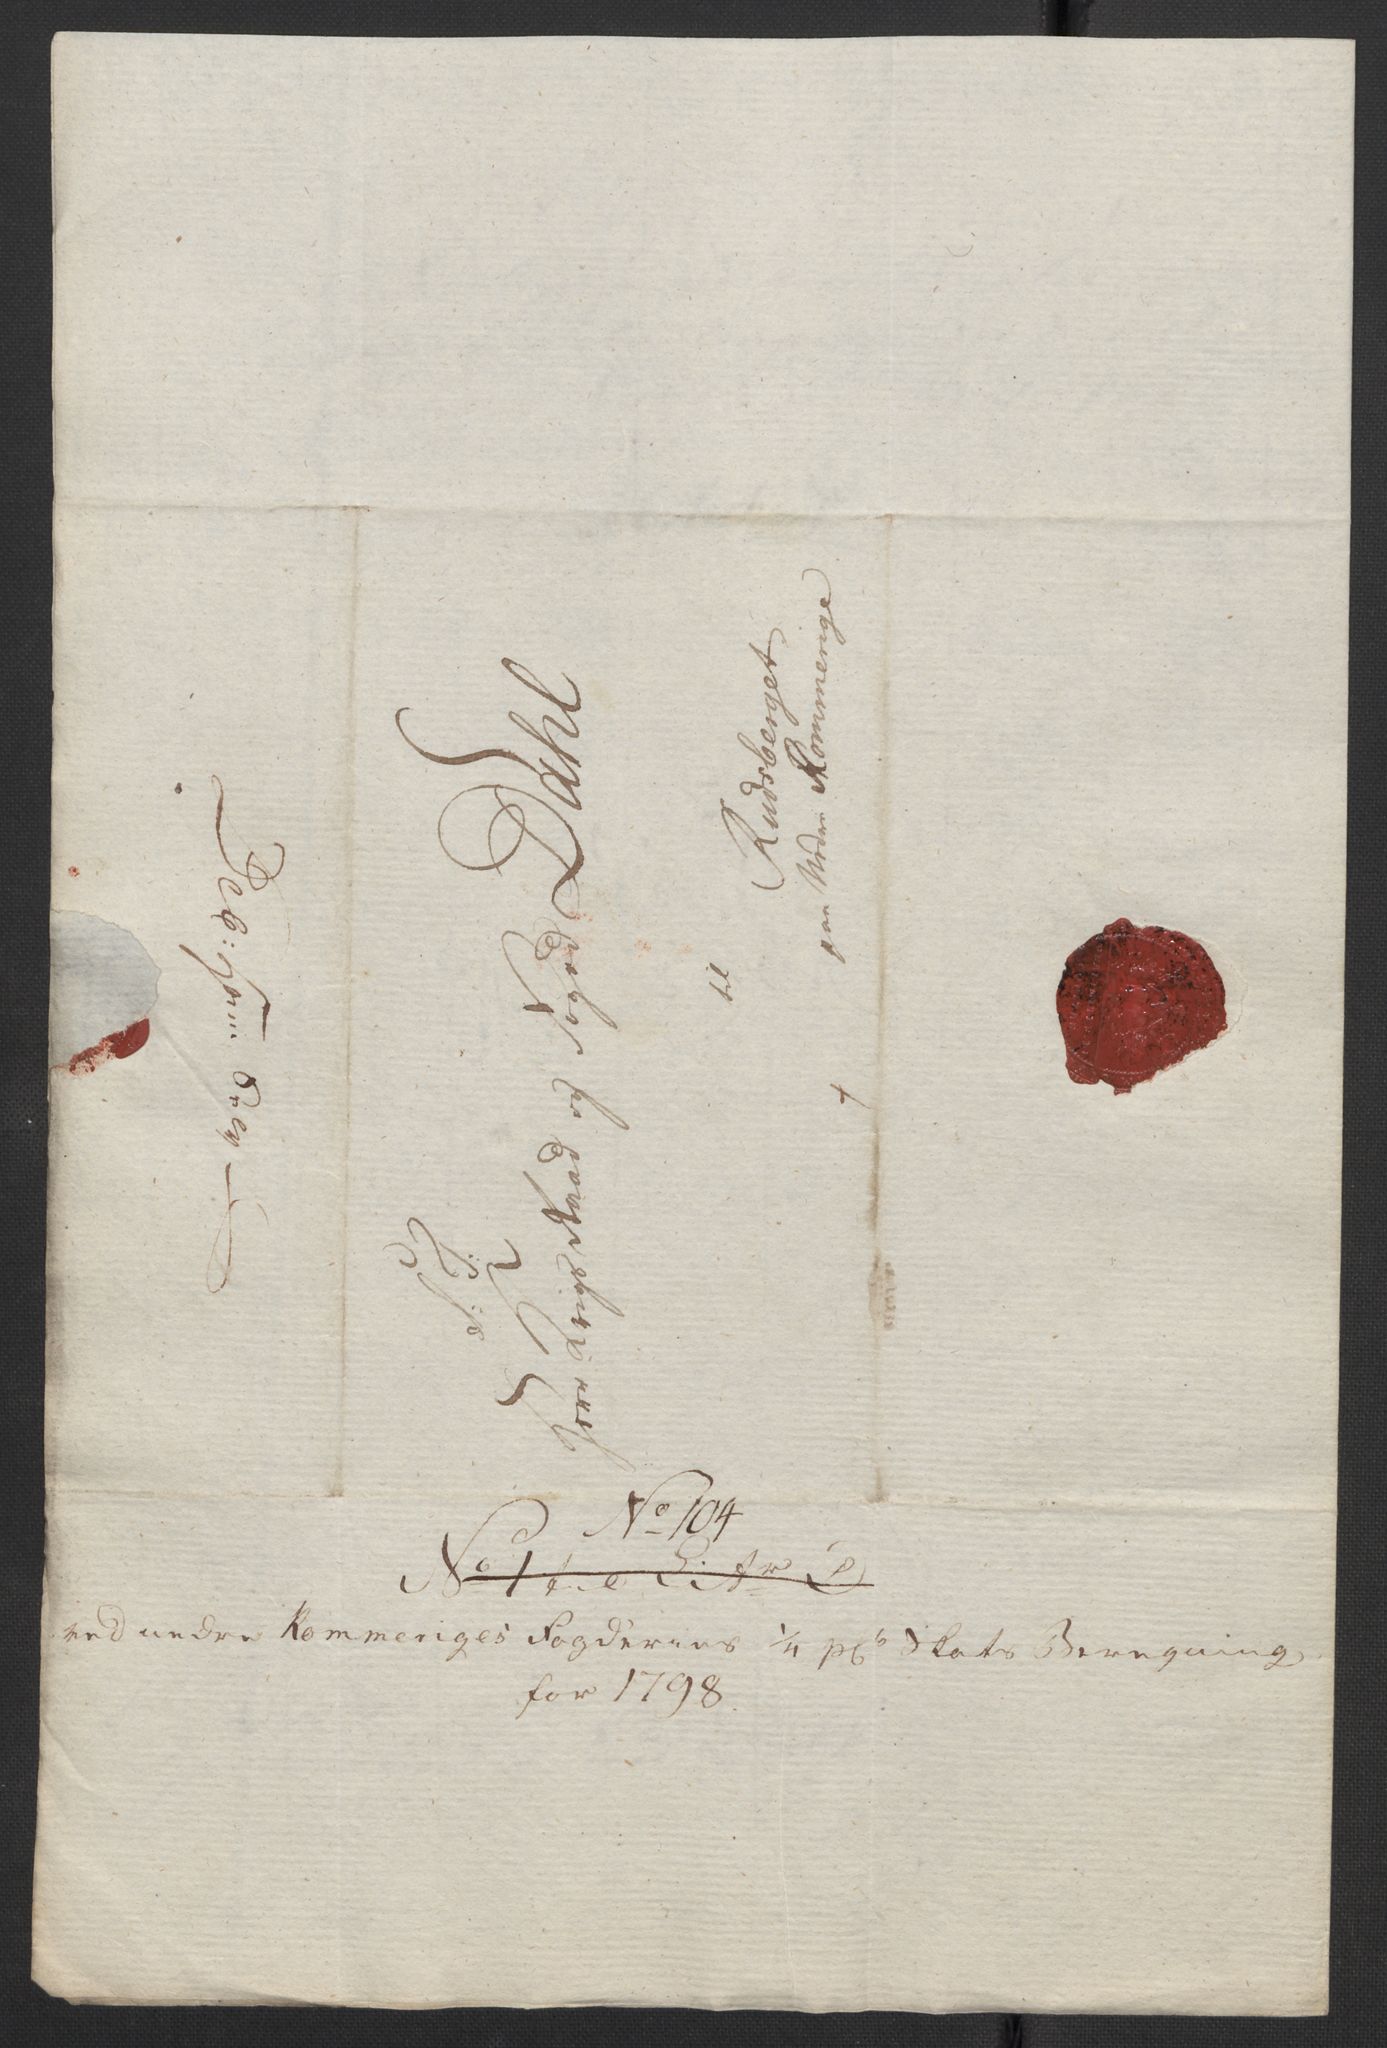 S: T:
Herr Krigsraad og Foged Dahl
til
Rudsberget
paa Nedre Rommerige
No 104
No 1 Litr
ved nedre Rommeriges Fogderies 1/4 pCt Skats Beregning
for 1798